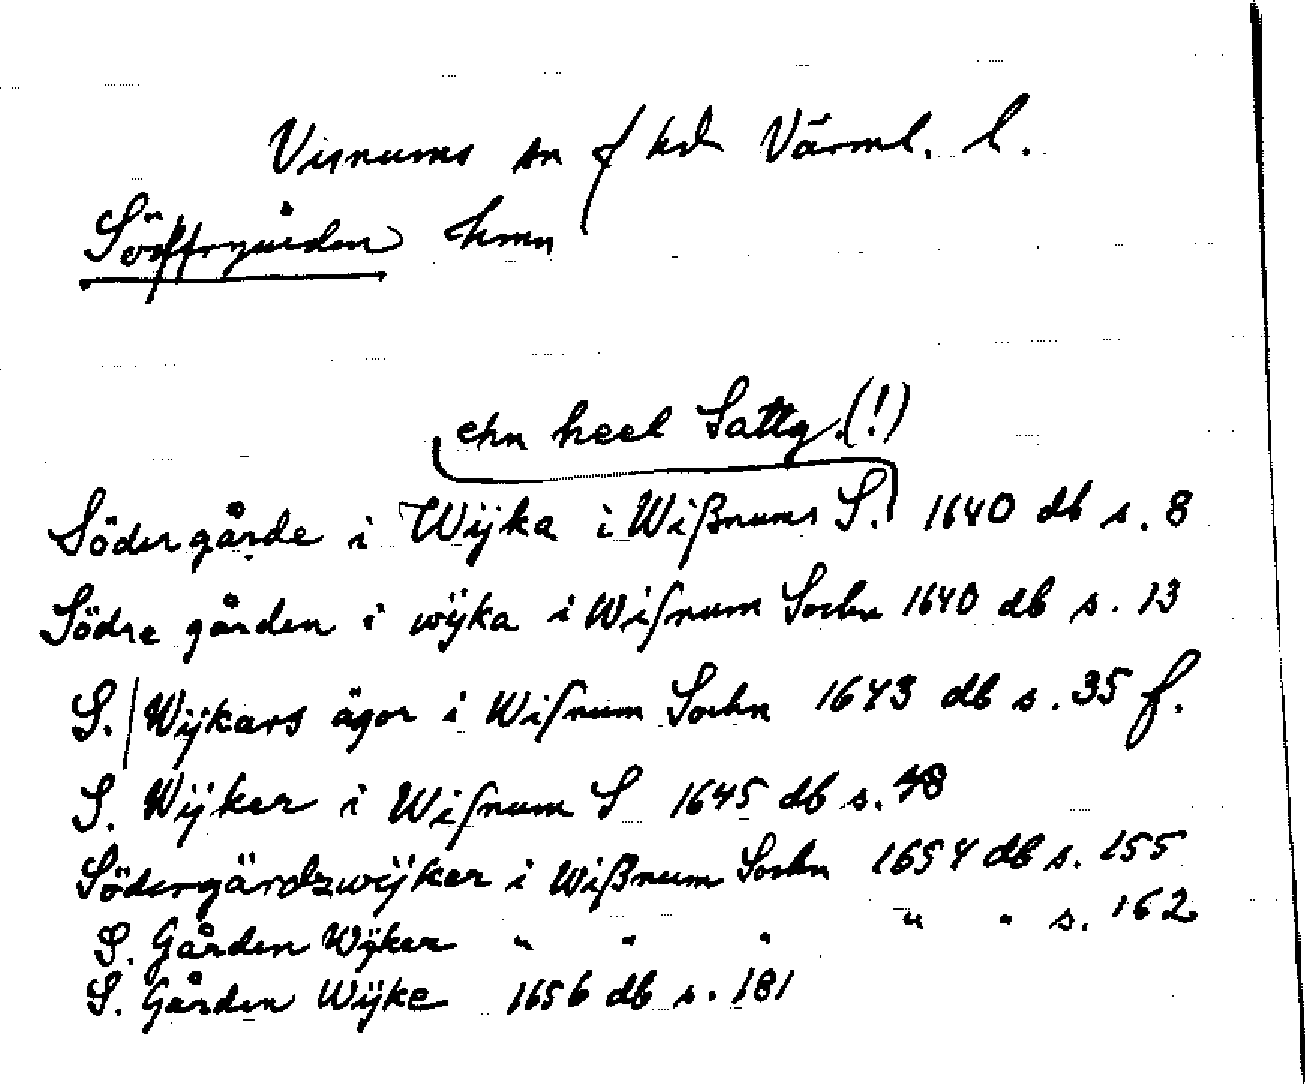 Visnums sn f hd Värml. l.
Södergården hmn
ehn heel Sattg.(!)
Södergårde i Wijka i Wißnums S. 1640 db s. 8
Södre gården i wÿka i Wiſnum Sochn 1640 db s. 13
S./Wijkars ägor i Wiſnum Sochn 1643 db s. 35 f.
S. Wijker i Wiſnum S 1645 db s. 48
Södergårdzwÿker i Wißnum Sochn 1654 db s. 155
S. Gården Wÿker " " " " " s. 162
S. Gården Wÿke 1656 db s. 181